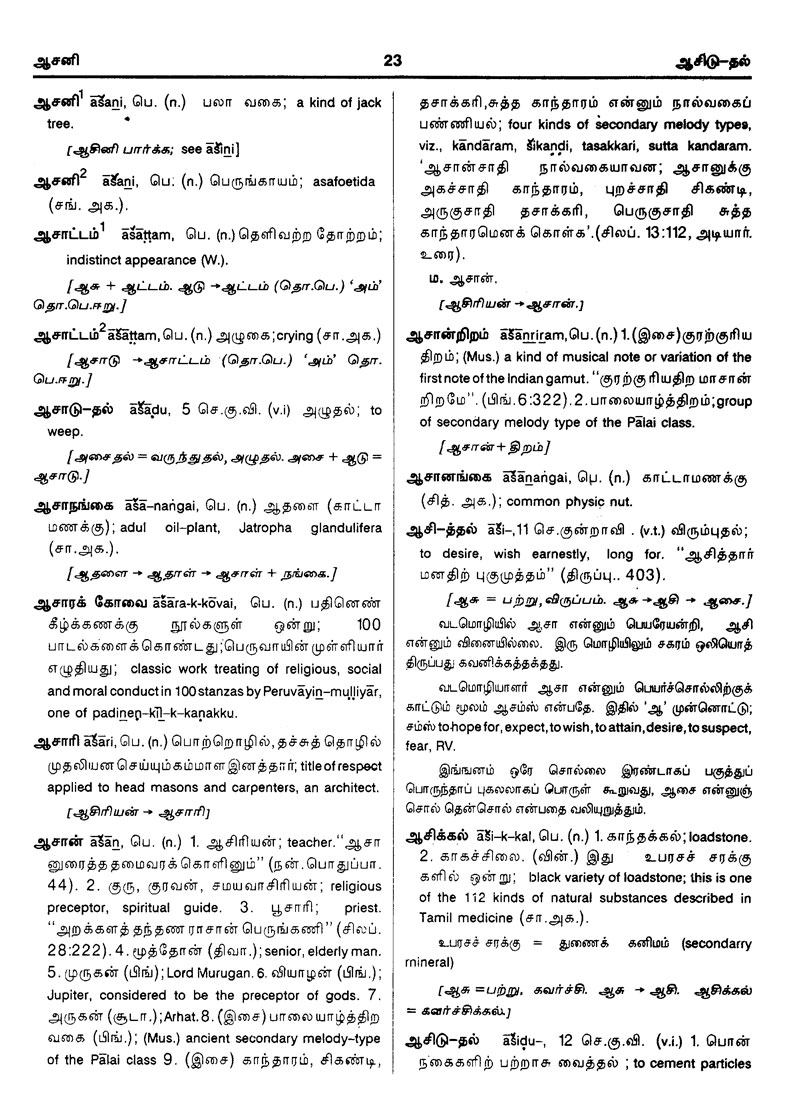 ஆசனி
23
ஆசிடு-தல்
ஆசனி1 āšaṉi, பெ. (n.) பலா வகை; a kind of jack
tree.
[ஆசினி பார்க்க; see āšiṉi]
ஆசனி2 āšaṉi, பெ. (n.) பெருங்காயம்; asafoetida
(சங். அக.).
ஆசாட்டம்1 āšāṭṭam, பெ. (n.) தெளிவற்ற தோற்றம்;
indistinct appearance (W.).
[ஆசு + ஆட்டம். ஆடு →ஆட்டம் (தொ.பெ.) ‘அம்’
தொ.பெ.ஈறு.]
ஆசாட்டம்2 āšāṭṭam, பெ. (n.) அழுகை; crying (சா.அக.)
[ஆசாடு →ஆசாட்டம் (தொ.பெ.) ‘அம்’ தொ.
பெ.ஈறு.]
ஆசாடு-தல் āšāḍu, 5 செ.கு.வி. (v.i) அழுதல்; to
weep.
[அசைதல் = வருந்துதல், அழுதல். அசை + ஆடு =
ஆசாடு.]
ஆசாநங்கை āšā-naṅgai, பெ. (n.) ஆதளை (காட்டா
மணக்கு); adul oil-plant, Jatropha glandulifera
(சா.அக.).
[ஆதளை → ஆதாள் → ஆசாள் + நங்கை.]
ஆசாரக் கோவை āšāra-k-kōvai, பெ. (n.) பதினெண்
கீழ்க்கணக்கு நூல்களுள் ஒன்று; 100
பாடல்களைக்கொண்டது;பெருவாயின்முள்ளியார்
எழுதியது; classic work treating of religious, social
and moral conduct in 100 stanzas by Peruvāyiṉ-muḷḷiyār,
one of padiṉeṇ-kīḻ-k-kaṇakku.
ஆசாரி āšāri, பெ. (n.) பொற்றொழில், தச்சுத் தொழில்
முதலியன செய்யும் கம்மாள இனத்தார்; title of respect
applied to head masons and carpenters, an architect.
[ஆசிரியன் → ஆசாரி]
ஆசான் āšāṉ, பெ. (n.) 1. ஆசிரியன்; teacher. “ஆசா
னுரைத்த தமைவரக் கொளினும்” (நன். பொதுப்பா.
44). 2. குரு, குரவன், சமயவாசிரியன்; religious
preceptor, spiritual guide. 3. பூசாரி; priest.
“அறக்களத் தந்தண ராசான் பெருங்கணி” (சிலப்.
28:222). 4. மூத்தோன் (திவா.); senior, elderly man.
5. முருகன் (பிங்); Lord Murugan. 6. வியாழன் (பிங்.);
Jupiter, considered to be the preceptor of gods. 7.
அருகன் (சூடா.); Arhat. 8. (இசை) பாலையாழ்த்திற
வகை (பிங்.); (Mus.) ancient secondary melody-type
of the Pālai class 9. (இசை) காந்தாரம், சிகண்டி,
தசாக்கரி,சுத்த காந்தாரம் என்னும் நால்வகைப்
பண்ணியல்; four kinds of secondary melody types,
viz., kāndāram, šikaṇḍi, tasakkari, sutta kandaram.
‘ஆசான்சாதி நால்வகையாவன; ஆசானுக்கு
அகச்சாதி காந்தாரம், புறச்சாதி சிகண்டி,
அருகுசாதி தசாக்கரி, பெருகுசாதி சுத்த
காந்தாரமெனக் கொள்க’.(சிலப். 13:112, அடியார்.
உரை).
ம. ஆசான்.
[ஆசிரியன் →ஆசான்.]
ஆசான்றிறம் āšāṉriram, பெ. (n.) 1. (இசை)குரற்குரிய
திறம்; (Mus.) a kind of musical note or variation of the
first note of the Indian gamut. “குரற்கு ரியதிற மாசான்
றிறமே”. (பிங். 6:322). 2. பாலையாழ்த்திறம்; group
of secondary melody type of the Pālai class.
[ஆசான்+ திறம்]
ஆசானங்கை āšāṉaṅgai, பெ. (n.) காட்டாமணக்கு
(சித். அக.); common physic nut.
ஆசி-த்தல் āši-, 11 செ.குன்றாவி . (v.t.) விரும்புதல்;
to desire, wish earnestly, long for. “ஆசித்தார்
மனதிற் புகுமுத்தம்” (திருப்பு.. 403).
[ஆசு = பற்று, விருப்பம். ஆசு →ஆசி → ஆசை.]
வடமொழியில் ஆசா என்னும் பெயரேயன்றி, ஆசி
என்னும் வினையில்லை. இரு மொழியிலும் சகரம் ஒலியொத்
திருப்பது கவனிக்கத்தக்கது.
வடமொழியாளர் ஆசா என்னும் பெயர்ச்சொல்லிற்குக்
காட்டும் மூலம் ஆசம்ஸ் என்பதே. இதில் ‘ஆ’ முன்னொட்டு;
சம்ஸ் to-hope for, expect, to wish, to attain, desire, to suspect,
fear, RV.
இங்ஙனம் ஒரே சொல்லை இரண்டாகப் பகுத்துப்
பொருந்தாப் புகலலாகப் பொருள் கூறுவது, ஆசை என்னுஞ்
சொல் தென்சொல் என்பதை வலியுறுத்தும்.
ஆசிக்கல் āši-k-kal, பெ. (n.) 1. காந்தக்கல்; loadstone.
2. காகச்சிலை. (வின்.) இது உபரசச் சரக்கு
களில் ஒன்று; black variety of loadstone; this is one
of the 112 kinds of natural substances described in
Tamil medicine (சா.அக.).
உபரசச் சரக்கு = துணைக் கனிமம் (secondarry
rnineral)
[ஆசு =பற்று, கவர்ச்சி. ஆசு → ஆசி. ஆசிக்கல்
= கவர்ச்சிக்கல்.]
ஆசிடு-தல் āšiḍu-, 12 செ.கு.வி. (v.i.) 1. பொன்
நகைகளிற் பற்றாசு வைத்தல் ; to cement particles